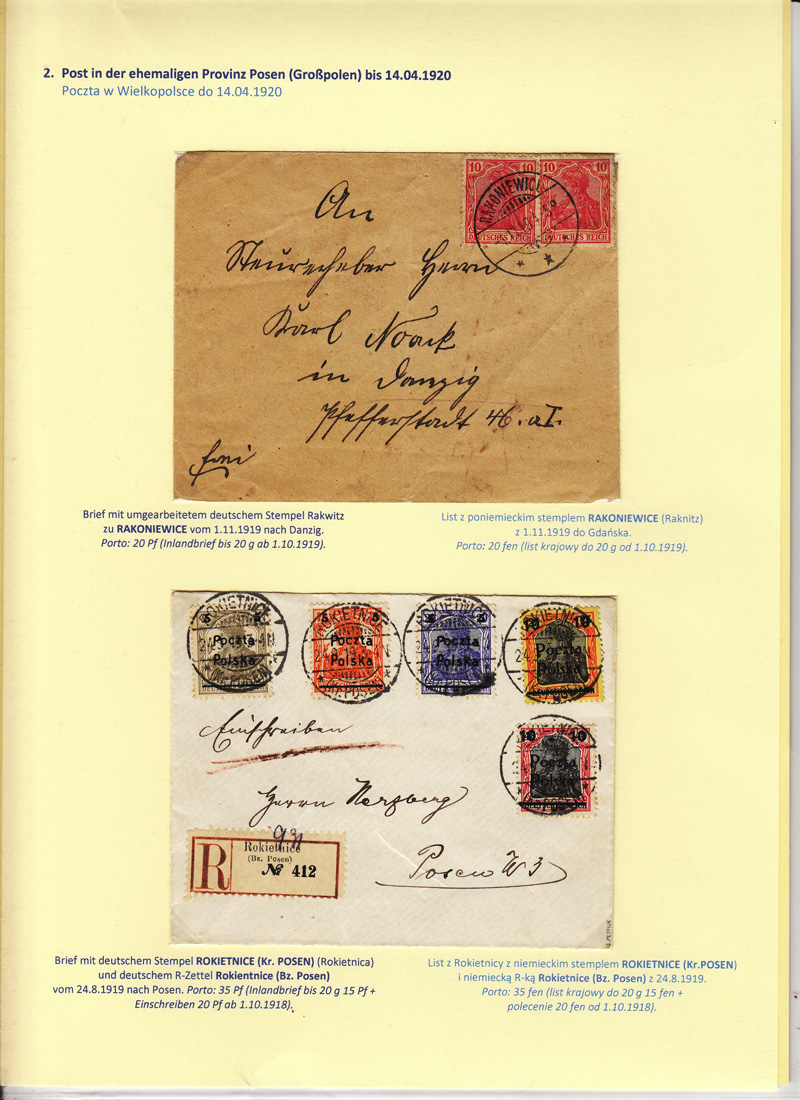 2. Post in der ehemaligen Provinz Posen (Großpolen) bis 14.04.1920
Poczta w Wielkopolsce do 14.04.1920
10 10 10 10
RAKONIEWICE
DEUTSCHES REICH DEUTSCHES REICH
An
Steurerheber Herrn
Karl Noack
in Danzig
Pfefferstadt 46. a I.
frei
Brief mit umgearbeitetem deutschem Stempel Rakwitz
zu RAKONIEWICE vom 1.11.1919 nach Danzig.
Porto: 20 Pf (Inlandbrief bis 20 g ab 1.10.1919).
List z poniemieckim stemplem RAKONIEWICE (Raknitz)
z 1.11.1919 do Gdańska.
Porto: 20 fen (list krajowy do 20 g od 1.10.1919).
ROKIETNICE ROKIETNICE ROKIETNICE ROKIETNICE
5 5 5 5 5 5 10 10
Poczta Poczta Poczta Poczta
Polska Polska Polska Polska
(Kr. POSEN)
10 10
Poczta
Polska
Einschreiben
Herrn Herzberg
Posen W 3
R
Rokietnice
(Bz. Posen)
№ 412
Brief mit deutschem Stempel ROKIETNICE (Kr. POSEN) (Rokietnica)
und deutschem R-Zettel Rokientnice (Bz. Posen)
vom 24.8.1919 nach Posen. Porto: 35 Pf (Inlandbrief bis 20 g 15 Pf +
Einschreiben 20 Pf ab 1.10.1918).
List z Rokietnicy z niemieckim stemplem ROKIETNICE (Kr.POSEN)
i niemiecką R-ką Rokietnice (Bz. Posen) z 24.8.1919.
Porto: 35 fen (list krajowy do 20 g 15 fen +
polecenie 20 fen od 1.10.1918).